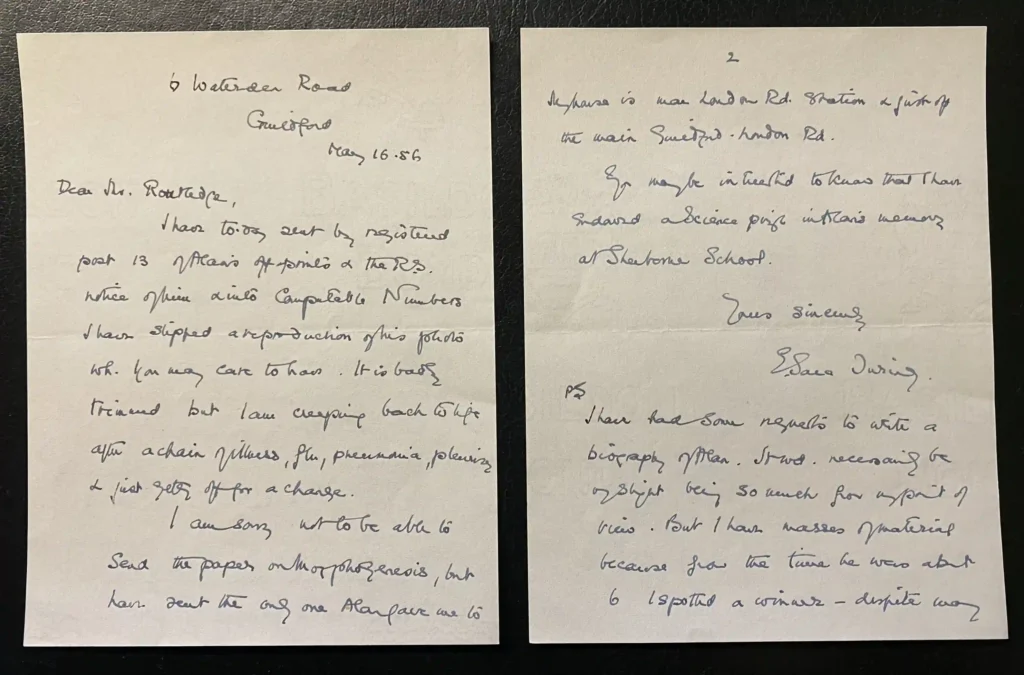 6 Waterden Road
Guildford
May 16.56
Dear Mr. Routledge,
I have to-day sent by registered
post 13 of Alan's offprints & the R.S.
notice of him & into Computable Numbers
I have slipped a reproduction of his photo
wh. you may care to have. It is badly
trimmed but I am creeping back to life
after a chain of illness, flu, pneumonia, pleurisy
& just getting off for a change.
I am sorry not to be able to
send the paper on Morphogenesis, but
have sent the only one Alan gave me to
2
My house is near London Rd. Station & just off
the main Guildford-London Rd.
You may be interested to know that I have
endowed a Science prize in Alan's memory
at Sherborne School.
Yours sincerely
E. Sara Turing.
PS
I have had some requests to write a
biography of Alan. It wd. necessarily be
slight being so much from my point of
view. But I have masses of material
because from the time he was about
6 I spotted a winner - despite many